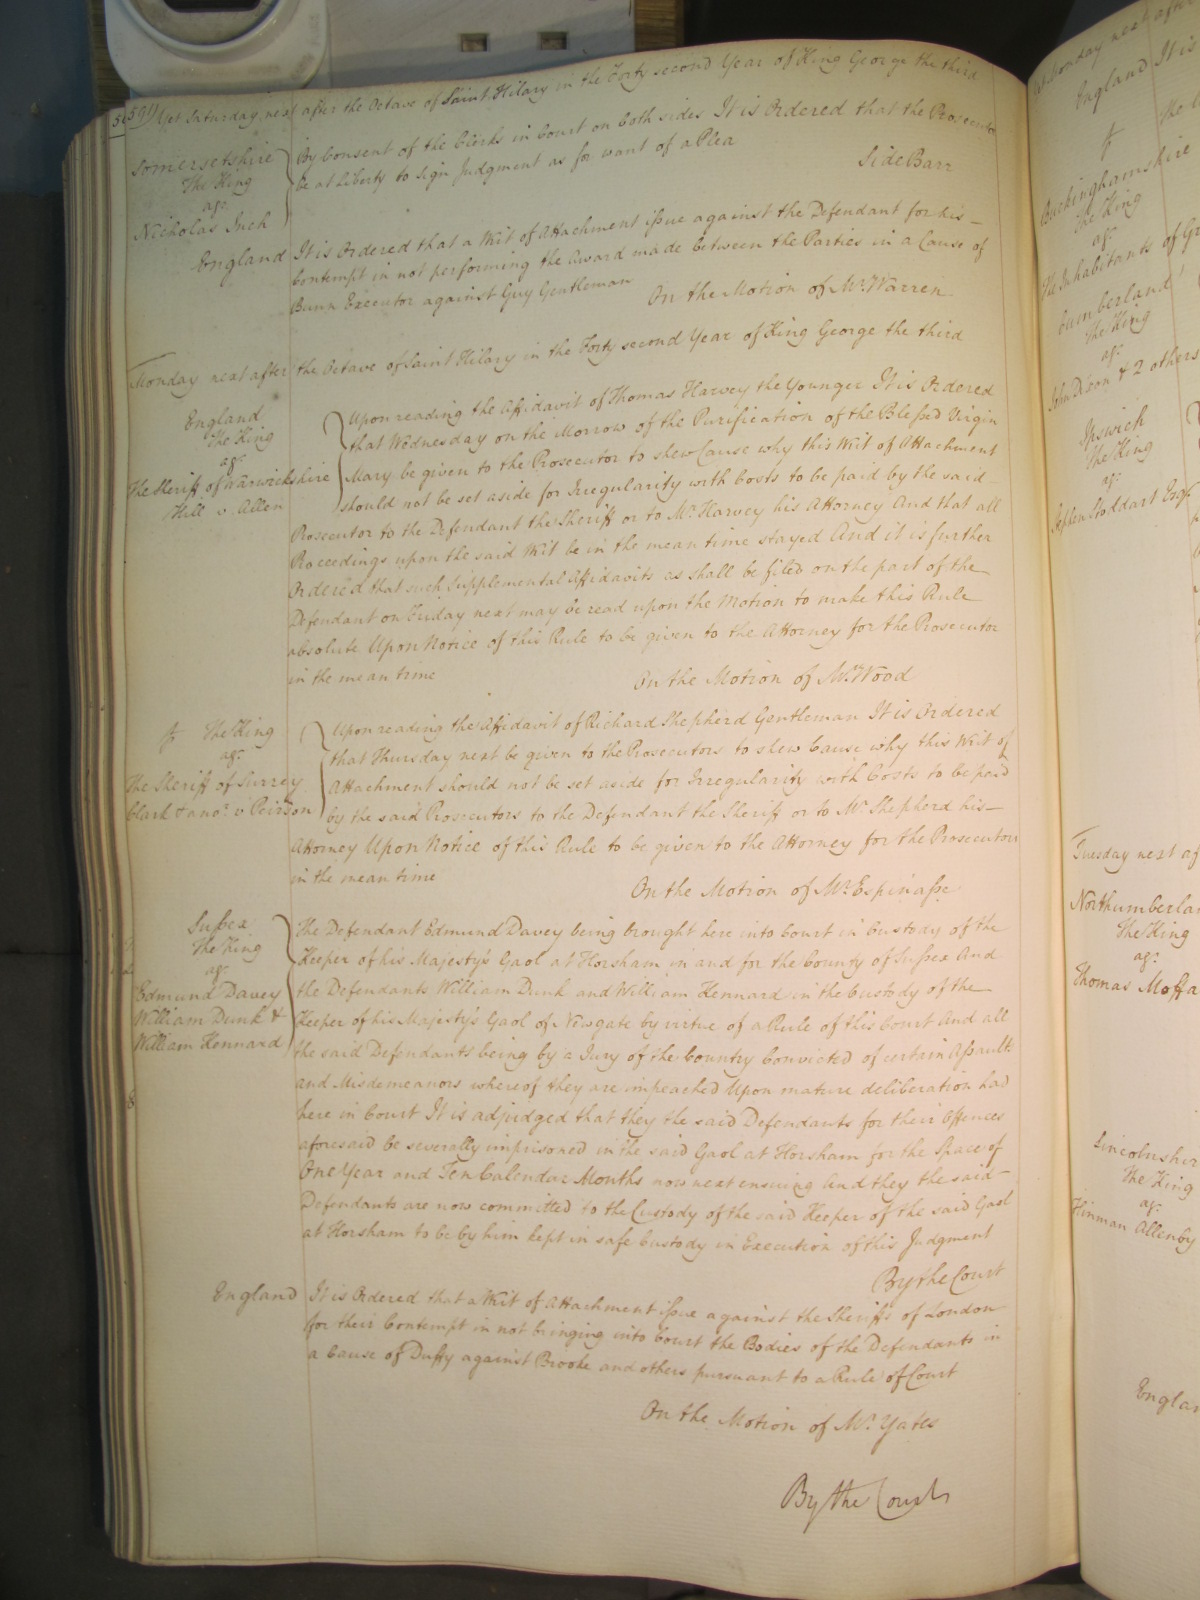 Yet Saturday next after the Octave of Saint Hilary in the Forty second Year of King George the third
Somersetshire
The King
agt.
Nicholas Inch
By Consent of the Clerks in Court on both sides It is Ordered that the Prosecutor
be at Liberty to sign Judgment as for want of a Plea
Side Barr
England
It is Ordered that a Writ of Attachment issue against the Defendant for his
Contempt in not performing the Award made between the Parties in a Cause of
Bunn Executor against Guy Gentleman
On the Motion of Mr. Warren
Monday next after the Octave of Saint Hilary in the Forty second Year of King George the third
England
The King
agt.
The Sheriff of Warwickshire
Hill v Allen
Upon reading the Affidavit of Thomas Harvey the Younger It is Ordered
that Wednesday on the Morrow of the Purification of the Blessed Virgin
Mary be given to the Prosecutor to shew Cause why this Writ of Attachment
should not be set aside for Irregularity with Costs to be paid by the said
Prosecutor to the Defendant the Sheriff or to Mr. Harvey his Attorney And that all
Proceedings upon the said Writ be in the mean time stayed And it is further
Ordered that such Supplemental Affidavits as shall be filed on the part of the
Defendant on Friday next may be read upon the Motion to make this Rule
absolute Upon Notice of this Rule to be given to the Attorney for the Prosecutor
in the mean time
On the Motion of Mr. Wood
The King
agt.
The Sheriff of Surrey
Clark & anor. v Peirson
Upon reading the Affidavit of Richard Shepherd Gentleman It is Ordered
that Thursday next be given to the Prosecutors to shew Cause why this Writ of
Attachment should not be set aside for Irregularity with Costs to be paid
by the said Prosecutors to the Defendant the Sheriff or to Mr. Shepherd his
Attorney Upon Notice of this Rule to be given to the Attorney for the Prosecutors
in the mean time
On the Motion of Mr. Espinasse
Sussex
The King
agt.
Edmund Davey
William Dunk &
William Kennard
The Defendant Edmund Davey being brought here into Court in Custody of the
Keeper of his Majesty's Gaol at Horsham in and for the County of Sussex And
the Defendants William Dunk and William Kennard in the Custody of the
Keeper of his Majesty's Gaol of Newgate by virtue of a Rule of this Court And all
the said Defendants being by a Jury of the Country Convicted of certain Assaults
and Misdemeanors whereof they are impeached Upon mature deliberation had
here in Court It is adjudged that they the said Defendants for their Offences
aforesaid be severally imprisoned in the said Gaol at Horsham for the Space of
One Year and Ten Calendar Months now next ensuing And they the said
Defendants are now committed to the Custody of the said Keeper of the said Gaol
at Horsham to be by him kept in safe Custody in Execution of this Judgment
By the Court
England
It is Ordered that a Writ of Attachment issue against the Sheriffs of London
for their Contempt in not bringing into Court the Bodies of the Defendants in
a Cause of Duffy against Brooke and others pursuant to a Rule of Court
On the Motion of Mr. Yates
By the Court
England It is
Buckinghamshire
The King
agt.
The Inhabitants of
Cumberland
The King
agt.
John Dixon & 2 others
Ipswich
The King
agt.
Stephen Stoddart Esqr.
Tuesday next
Northumberlan
The King
agt.
Thomas Moffa
Lincolnshir
The King
agt.
Hinman Allenby
Englan